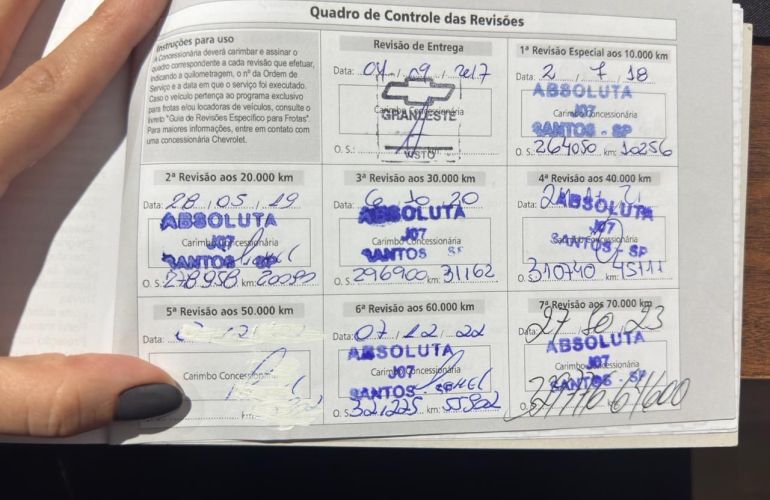 Quadro de Controle das Revisões
Instruções para uso
A Concessionária deverá carimbar e assinar o
quadro correspondente a cada revisão que efetuar,
indicando a quilometragem, o nº da Ordem de
Serviço e a data em que o serviço foi executado.
Caso o veículo pertença ao programa exclusivo
para frotas e/ou locadoras de veículos, consulte o
livreto "Guia de Revisões Específico para Frotas".
Para maiores informações, entre em contato com
uma concessionária Chevrolet.
Revisão de Entrega
Data: 04 / 09 / 2017
Carimbo Concessionária
GRANLESTE
VISTO
O. S.:
1ª Revisão Especial aos 10.000 km
Data: 2 / 7 / 18
ABSOLUTA
J07
SANTOS - SP
O. S.: 264050 km: 10256
2ª Revisão aos 20.000 km
Data: 28 / 05 / 19
ABSOLUTA
Carimbo Concessionária
J07
SANTOS SP
O. S.: 278958 km:
3ª Revisão aos 30.000 km
Data: 6 10 20
ABSOLUTA
Carimbo Concessionária
J07
SANTOS SP
O. S.: 296900 km: 31162
4ª Revisão aos 40.000 km
Data:
ABSOLUTA
J07
Carimbo Concessionária
SANTOS - SP
O. S.: 310740 km: 45111
5ª Revisão aos 50.000 km
Data:
Carimbo Concessionária
km:
6ª Revisão aos 60.000 km
Data: 07 / 12 / 22
ABSOLUTA
Carimbo Concessionária
J07
SANTOS -
O. S.: 321225 km:
7ª Revisão aos 70.000 km
Data: 27 10 23
ABSOLUTA
J07
Carimbo Concessionária
SANTOS - SP
O. S.: 64600